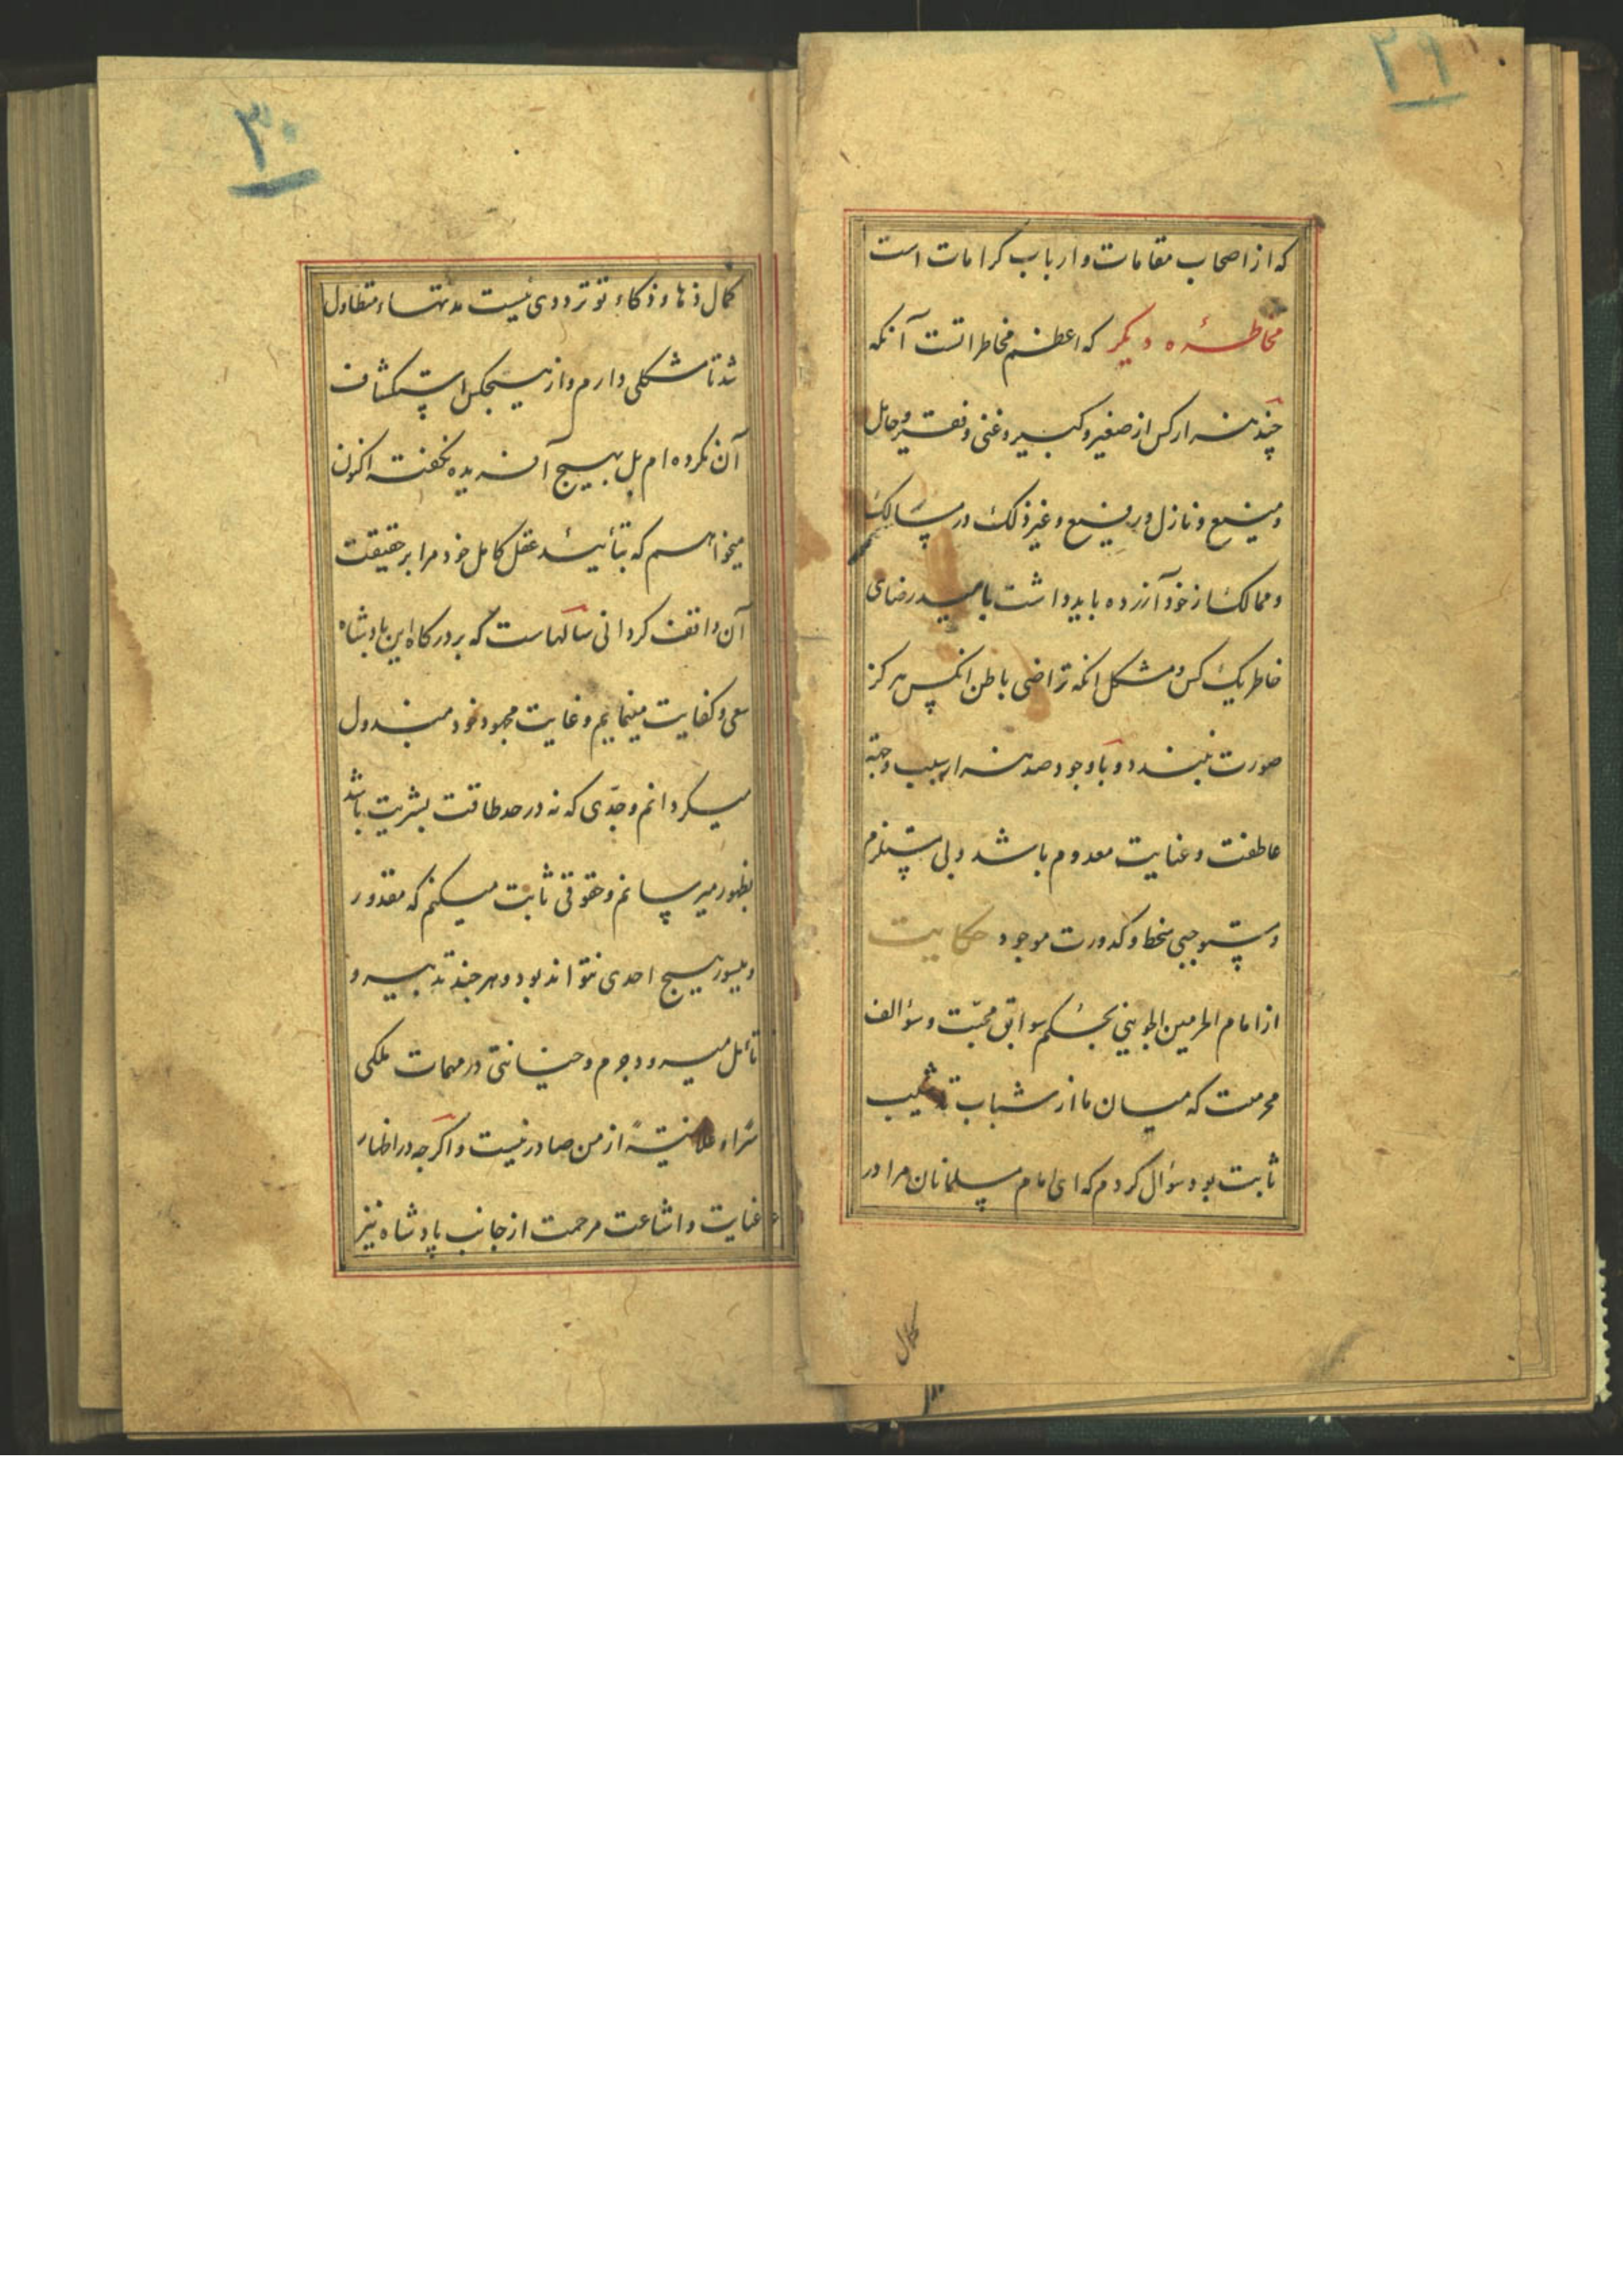 ۲۹
که از اصحاب مقامات و ارباب کرامات است
مخاطره دیگر که اعظم مخاطراتست آنکه
چند هزار کس از صغیر و کبیر و غنی و فقیر و حامل
و منیع و نازل و رفیع و غیر ذلک در مسالک
و ممالک از خود آزرده باید داشت بامید رضای
خاطر یک کس و مشکل انکه تراضی باطن انکس هرکز
صورت نبندد و با وجود صد هزار سبب و جهة
عاطفت و عنایت معدوم باشد و بی مستلزم
و مستوجبی سخط و کدورت موجود حکایت
از امام الحرمین الجوینی بحکم سوابق محبّت و سؤالف
محرمت که میان ما از شباب تا مشیب
ثابت بود سؤال کردم که ای امام مسلمانان مرا در
کمال
۳۰
کمال ذهاء و ذکاء تو ترددی نیست مدتهاء متطاول
شد تا مشکلی دارم و از هیچکس استکشاف
آن نکرده‌ام بل بهیچ آفریده نکفته اکنون
میخواهم که بتأیید عقل کامل خود مرا بر حقیقت
آن واقف کردانی سالهاست که بر درکاه این پادشاه
سعی و کفایت مینمایم و غایت مجهود خود مبذول
میکردانم و جدّی که نه در حد طاقت بشریت باشد
بظهور میرسانم و حقوقی ثابت میکنم که مقدور
و میسور هیچ احدی نتواند بود و هر چند تدبیر و
تأمل میرود جرم و خیانتی در مهمات ملکی
سرّاء و علانیةً از من صادر نیست و اکرچه در اظهار
عنایت و اشاعت مرحمت از جانب پادشاه نیز